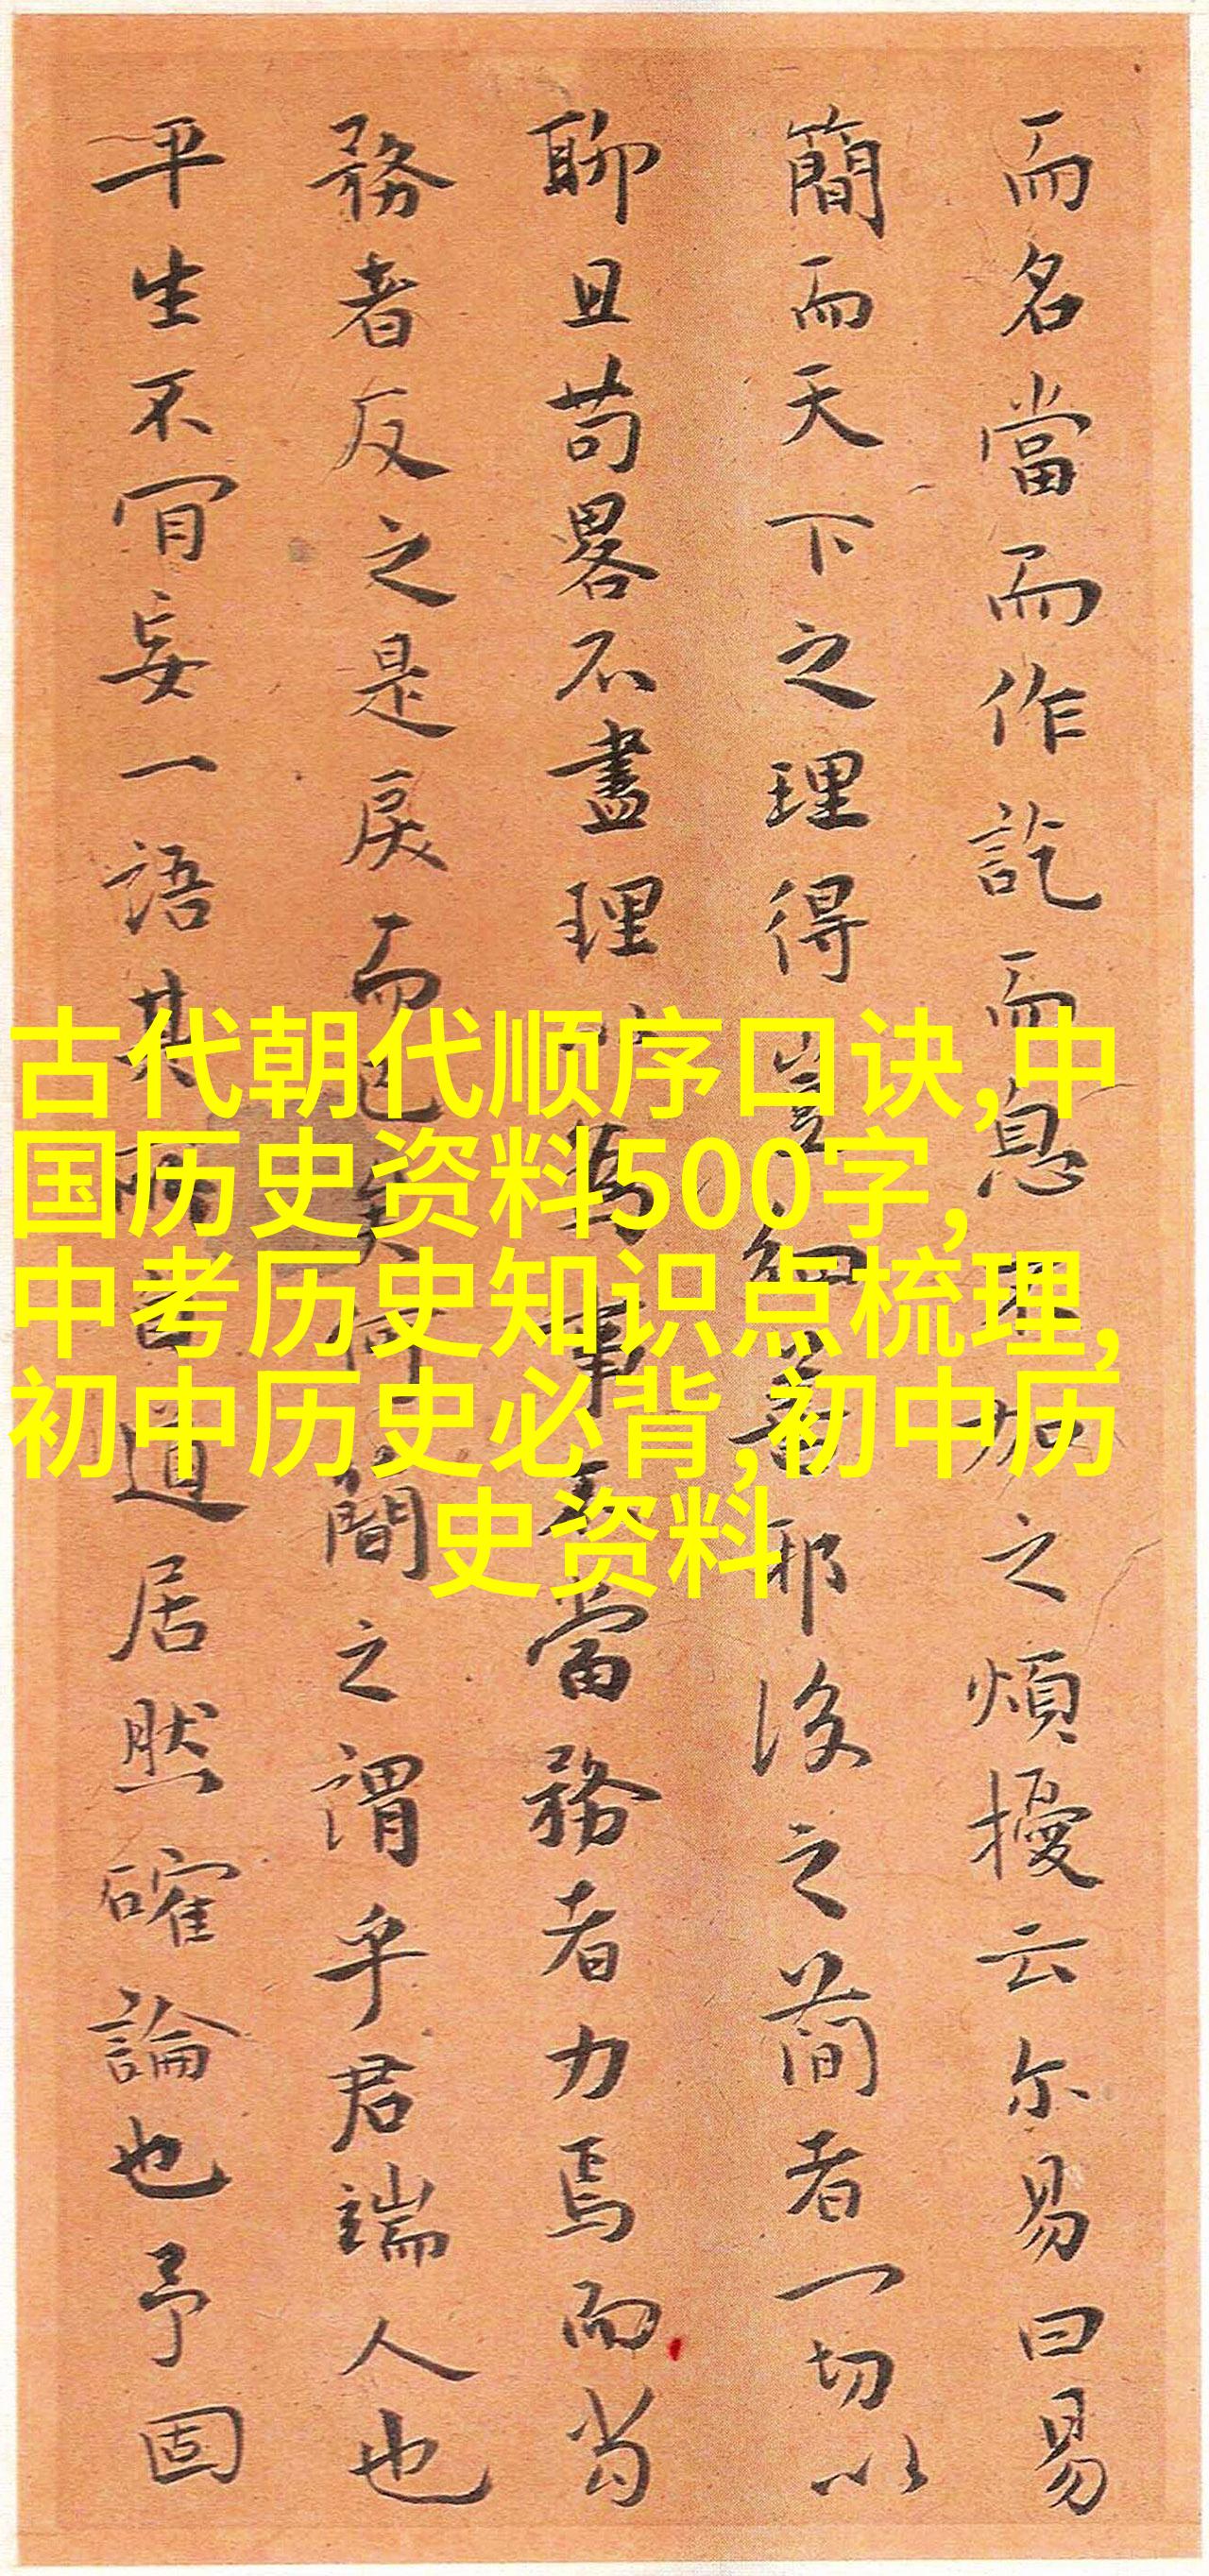 而名當而作訖而息之煩擾云尔易曰易
簡而天下之理得豈細耶後之简者一切以
聊且苟畧不盡理以為事當務者力焉而当
務者反之是戾而已矣何簡之謂乎君端人也
平生不肎妄一語其兩言道居然確論也予固
古代朝代顺序口诀,中
国历史资料500字,
中考历史知识点梳理,
初中历史必背,初中历
史资料